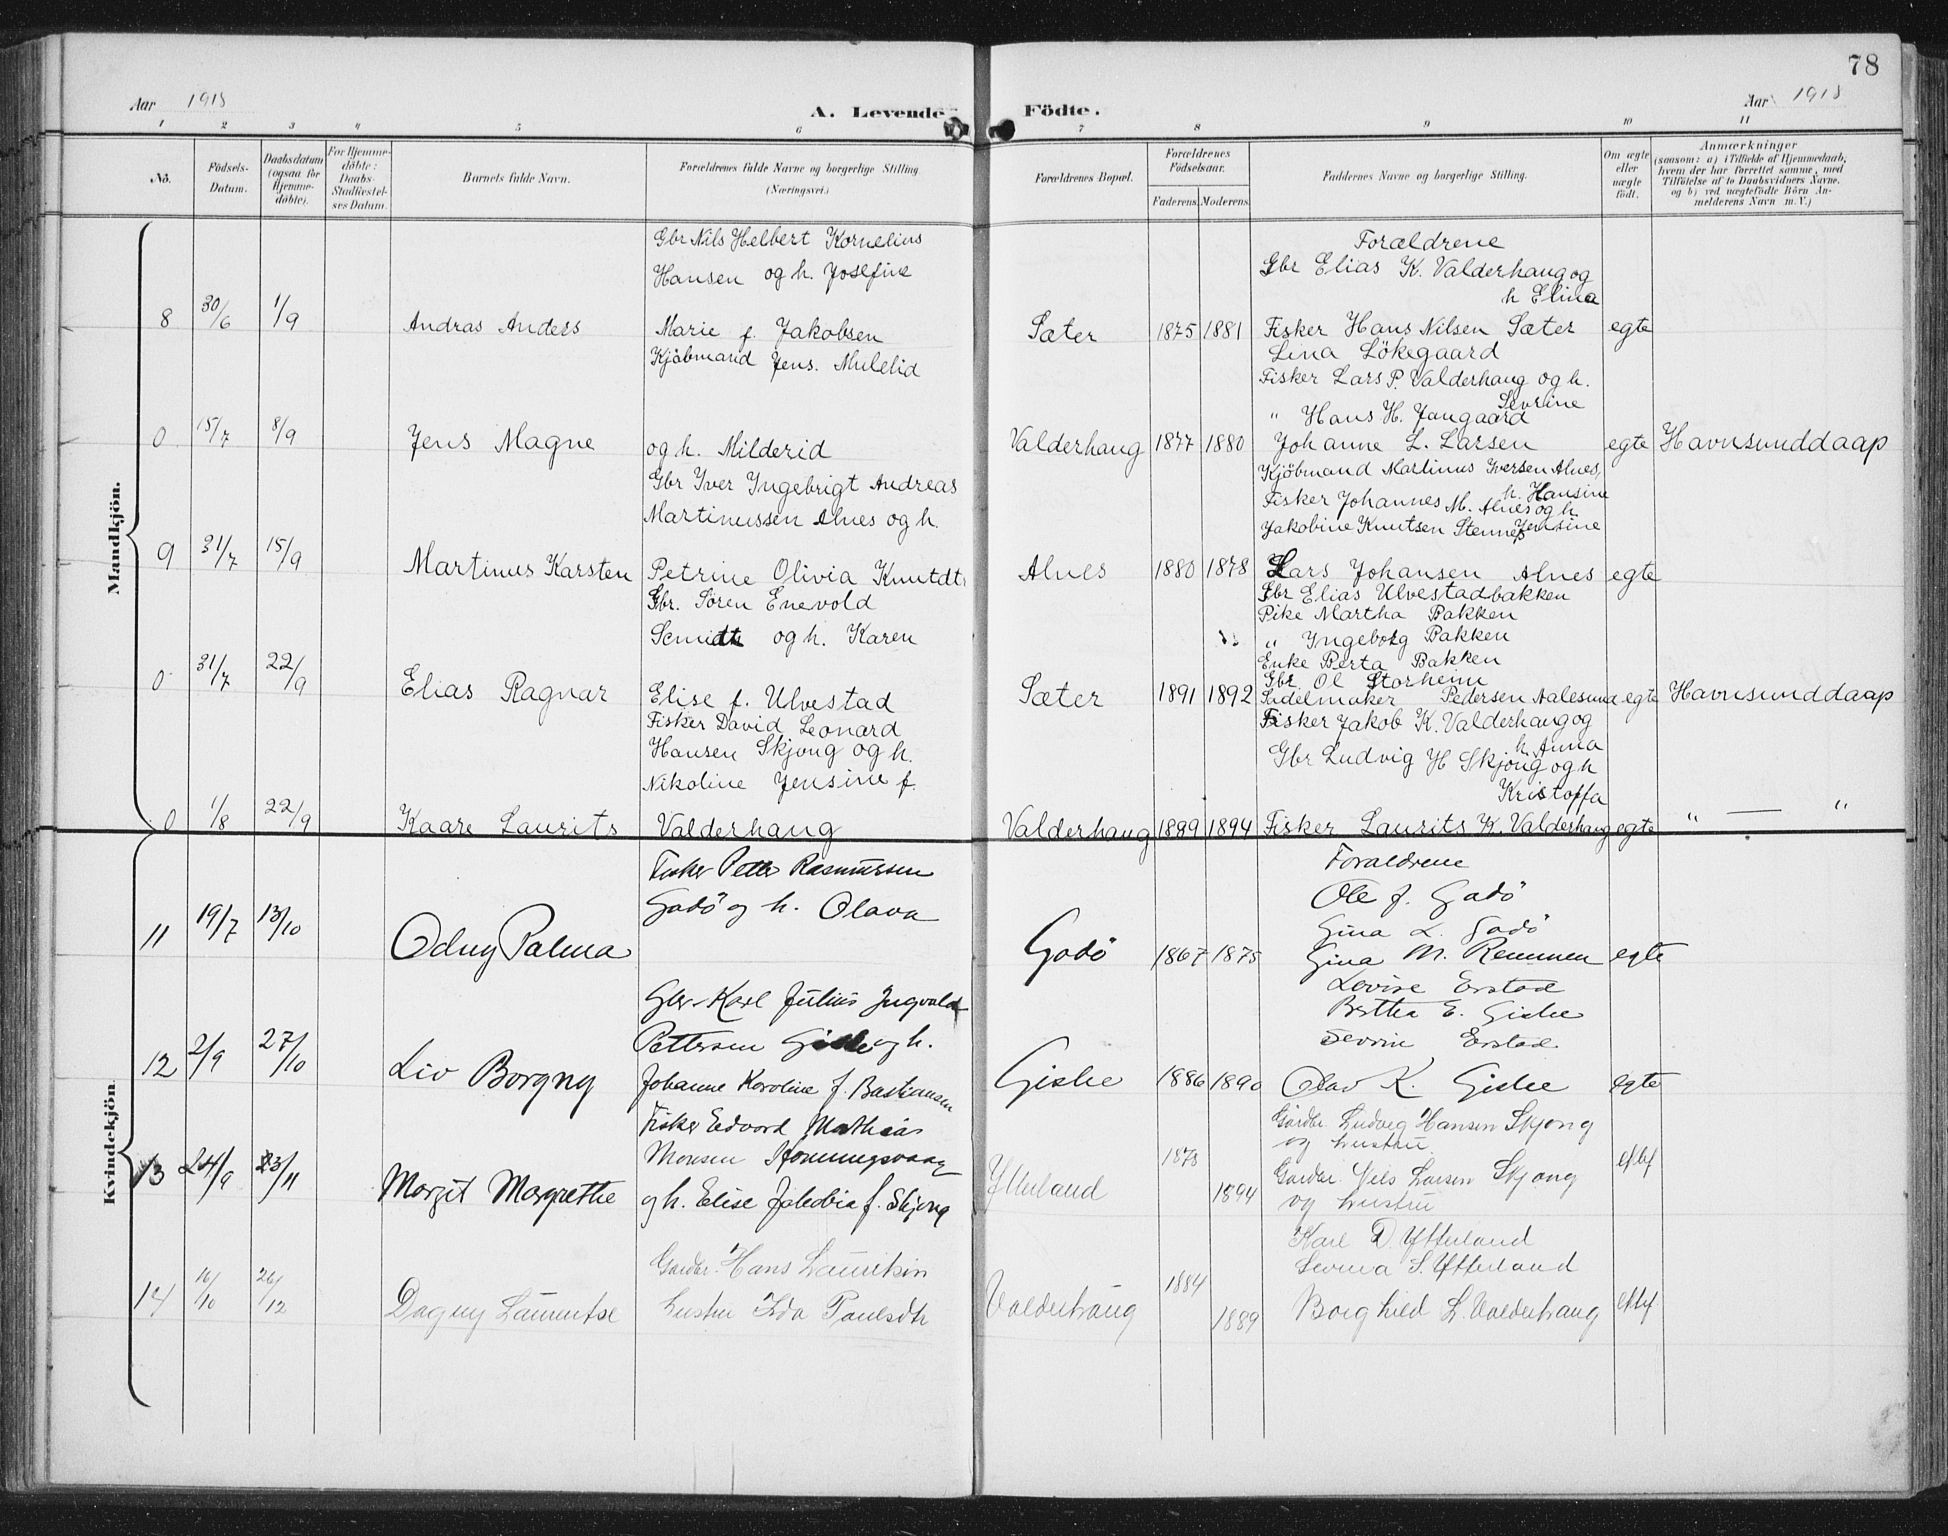 78
Aar 1918
A. Levende Födte.
Aar 1918
1 2 3 4 5 6 7 8 9 10 11
No. Födsels-Datum. Daabsdatum (ogsaa for Hjemme-döbte). For Hjemme-döbte: Daabs-Stadfæstel-ses Datum. Barnets fulde Navn. Forældrenes fulde Navne og borgerlige Stilling (Næringsvei.) Forældrenes Bopæl. Forældrenes Födselsaar. Faderens. Moderens. Faddernes Navne og borgerlige Stilling. Om ægte eller uægte födt. Anmærkninger (saasom: a) i Tilfælde af Hjemmedaab, hvem der har forrettet samme, med Tilföielse af to Daabsvidners Navne, og b) ved uægtefödte Börn An-melderens Navn m. V.)
Mandkjön.
Gbr Nils Helbert Kornelius
Hansen og h. Josefine
8 30/6 1/9 Andras Anders Marie f. Jakobsen Sæter 1875 1881
Forældrene
Gbr Elias K. Valderhaug og
h Elina
Fisker Hans Nilsen Sæter egte
Lina Lökegaard
Kjöbmand Jens. Mulelid
Fisker Lars P. Valderhaug og h.
Sevrine
" Hans H. Jangaard
0 15/7 8/9 Jens Magne og h. Milderid Valderhaug 1877 1880 Johanne L. Larsen egte Havnsunddaap
Gbr Iver Ingebrigt Andreas
Martinussen Alnes og h.
Kjöbmand Martinus Iversen Alnes,
h. Hansine
Fisker Johannes M. Alnes og h
Jensine
Jakobine Knutsen Stennes
9 31/7 15/9 Martinus Karsten Petrine Olivia Knutdt. Alnes 1880 1878 Lars Johansen Alnes egte
Gbr. Sören Enevold
Semidth og h. Karen
Gbr Elias Ulvestadbakken
Pike Martha Bakken
" Ingeborg Bakken
Enke Berta Bakken
Gbr Ol Storheim
0 31/7 22/9 Elias Ragnar Elise f. Ulvestad Sæter 1891 1892 Sadelmaker Pedersen Aalesund egte Havnsunddaap
Fisker David Leonard
Hansen Skjong og h.
Nikoline Jensine f.
Fisker Jakob K. Valderhaug og
h Anna
Gbr Ludvig H Skjong og h
Kristoffa
0 1/8 22/9 Kaare Laurits Valderhaug Valderhaug 1899 1894 Fisker Laurits K. Valderhaug egte " — "
Kvindekjön
Fisker Petter Rasmussen
Godö og h. Olava
11 19/7 13/10 Odny Palma Godö 1867 1875
Foraldrene
Ole J. Godö
Gina L. Godö
Gina M. Remmen egte
Lovise Erstad
Bertha E. Giske
Sevrin Erstad
Gbr Karl Julius Ingvald
Pettersen Giske og h.
12 2/9 27/10 Liv Borgny Johanne Karoline f. Bastiansen Giske 1886 1890 Olav K. Giske egte
Fisker Edvard Mathias
Monsen Honningsvaag
13 24/9 23/11 Margit Margrethe og h. Elise Jakobia f. Skjong Ytterland 1878 1894
Gardbr. Ludvig Hansen Skjong
og hustru
Gardbr. Nils Larsen Skjong
og hustru
Karl D. Ytterland
Sevrina S. Ytterland
Gardbr. Hans Lauritsin
14 16/10 26/12 Dagny Lauentse hustru Ida Paulsdtr Valderhaug 1884 1889 Borghild L. Valderhaug